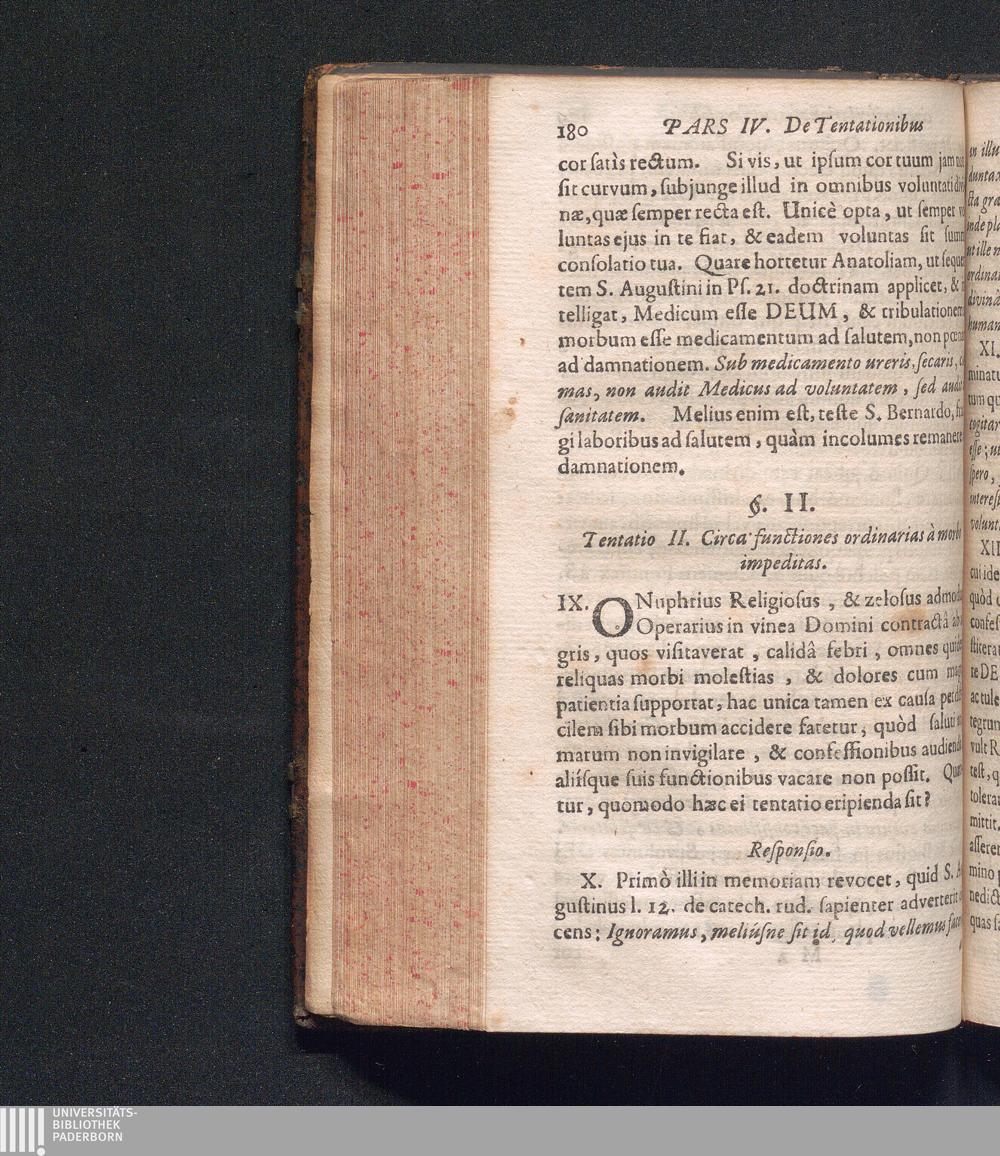 180 PARS IV. De Tentationibus
cor ſatìs rectum. Si vis, ut ipſum cor tuum jam
ſit curvum, ſubjunge illud in omnibus voluntati
næ, quæ ſemper recta eſt. Unicè opta, ut ſemper
luntas ejus in te fiat, & eadem voluntas ſit
conſolatio tua. Quare hortetur Anatoliam, ut
tem S. Auguſtini in Pſ. 21. doctrinam applicet, &
telligat, Medicum eſſe DEUM, & tribulationem
morbum eſſe medicamentum ad ſalutem, non
ad damnationem. Sub medicamento ureris, ſecaris,
mas, non audit Medicus ad voluntatem, ſed
ſanitatem. Melius enim eſt, teſte S. Bernardo,
gi laboribus ad ſalutem, quàm incolumes remanere
damnationem.
§. II.
Tentatio II. Circa functiones ordinarias à
impeditas.
IX. ONuphrius Religioſus, & zeloſus
Operarius in vinea Domini contractâ
gris, quos viſitaverat, calidâ febri, omnes
reliquas morbi moleſtias, & dolores cum
patientia ſupportat, hac unica tamen ex cauſa
cilem ſibi morbum accidere fatetur, quòd
marum non invigilare, & confeſſionibus
aliíſque ſuis functionibus vacare non poſſit.
tur, quomodo hæc ei tentatio eripienda ſit?
Reſponſio.
X. Primò illi in memoriam revocet, quid S.
guſtinus l. 12. de catech. rud. ſapienter
cens: Ignoramus, meliúſne ſit id, quod vellemus
XI.
UNIVERSITÄTS-
BIBLIOTHEK
PADERBORN